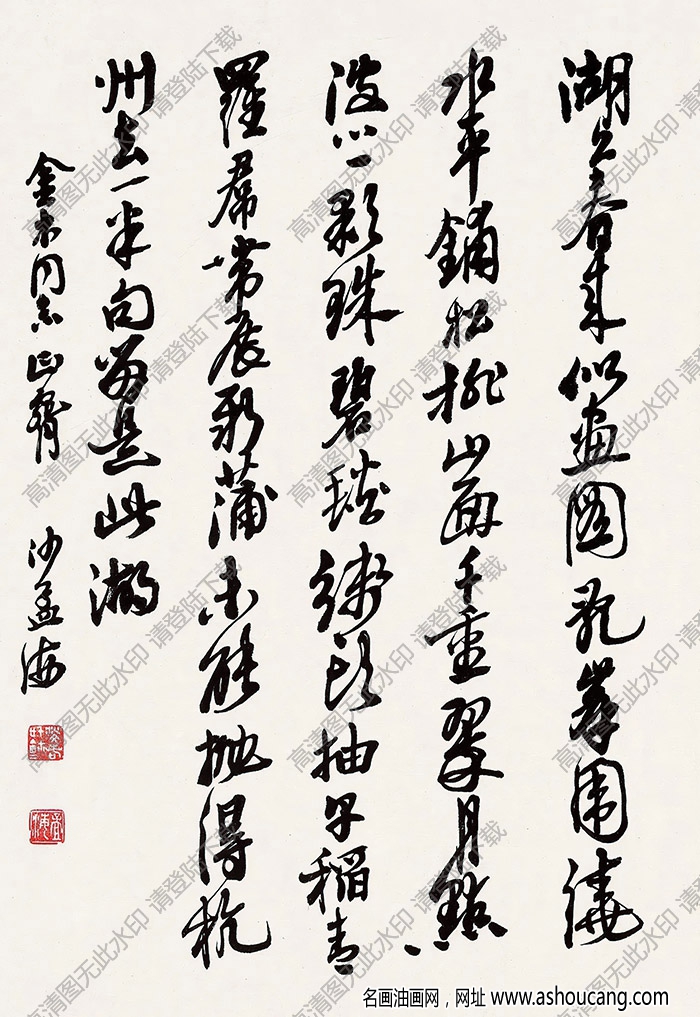 湖上春来似畫圖亂峯圍繞
水平鋪松排山面千重翠月點
波心一顆珠碧毯綫頭抽早稻青
羅裙帶展新蒲未能抛得杭
州去一半句留是此湖
金木同志正 沙孟海
高清图无此水印 请登陆下载
名画油画网，网址 www.ashoucang.com